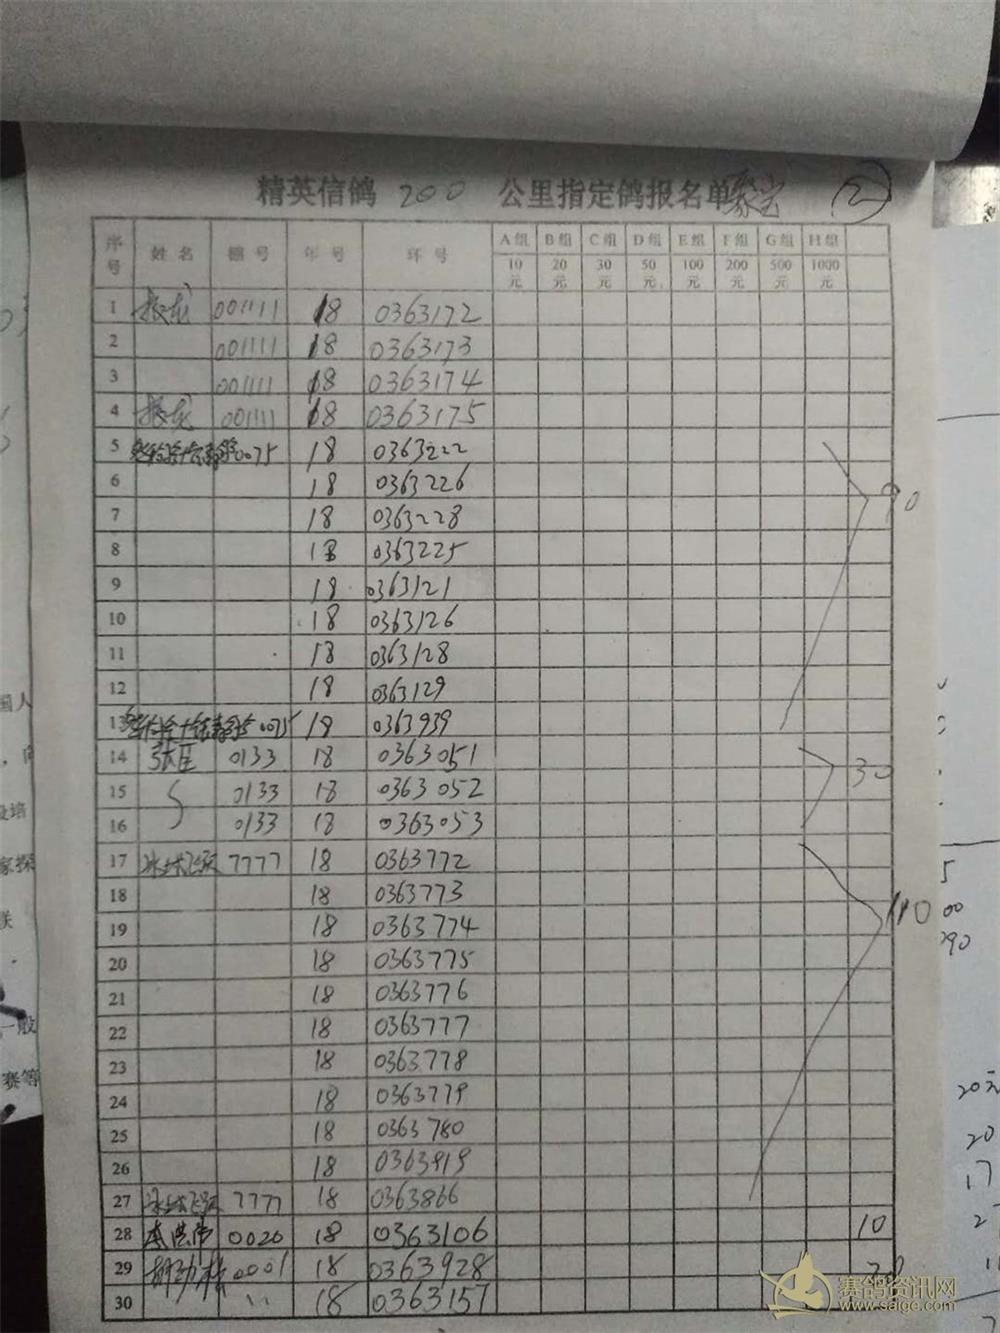 精英信鸽 200 公里指定鸽报名单 聚宝 ②
序号 姓名 棚号 年号 环号 A组 B组 C组 D组 E组 F组 G组 H组
10元 20元 30元 50元 100元 200元 500元 1000元
1 振龙 001111 18 0363172
2 001111 18 0363173
3 001111 18 0363174
4 振龙 001111 18 0363175
5 0075 18 0363222
6 18 0363226
7 18 0363228
8 18 0363225
9 18 0363121
10 18 0363126
11 18 0363128
12 18 0363129
13 0075 18 0363939
90
14 张臣 0133 18 0363051
15 0133 18 0363052
16 0133 18 0363053
30
17 冰城飞 7777 18 0363772
18 18 0363773
19 18 0363774
20 18 0363775
21 18 0363776
22 18 0363777
23 18 0363778
24 18 0363779
25 18 0363780
26 18 0363819
27 冰城飞 7777 18 0363866
110
28 李洪伟 0020 18 0363106 10
29 胡劲松 0001 18 0363928 20
30 18 0363157
国人
，向
培
家探
联
一般
赛等
5
00
290
20元
20
17
赛鸽资讯网
www.saige.com